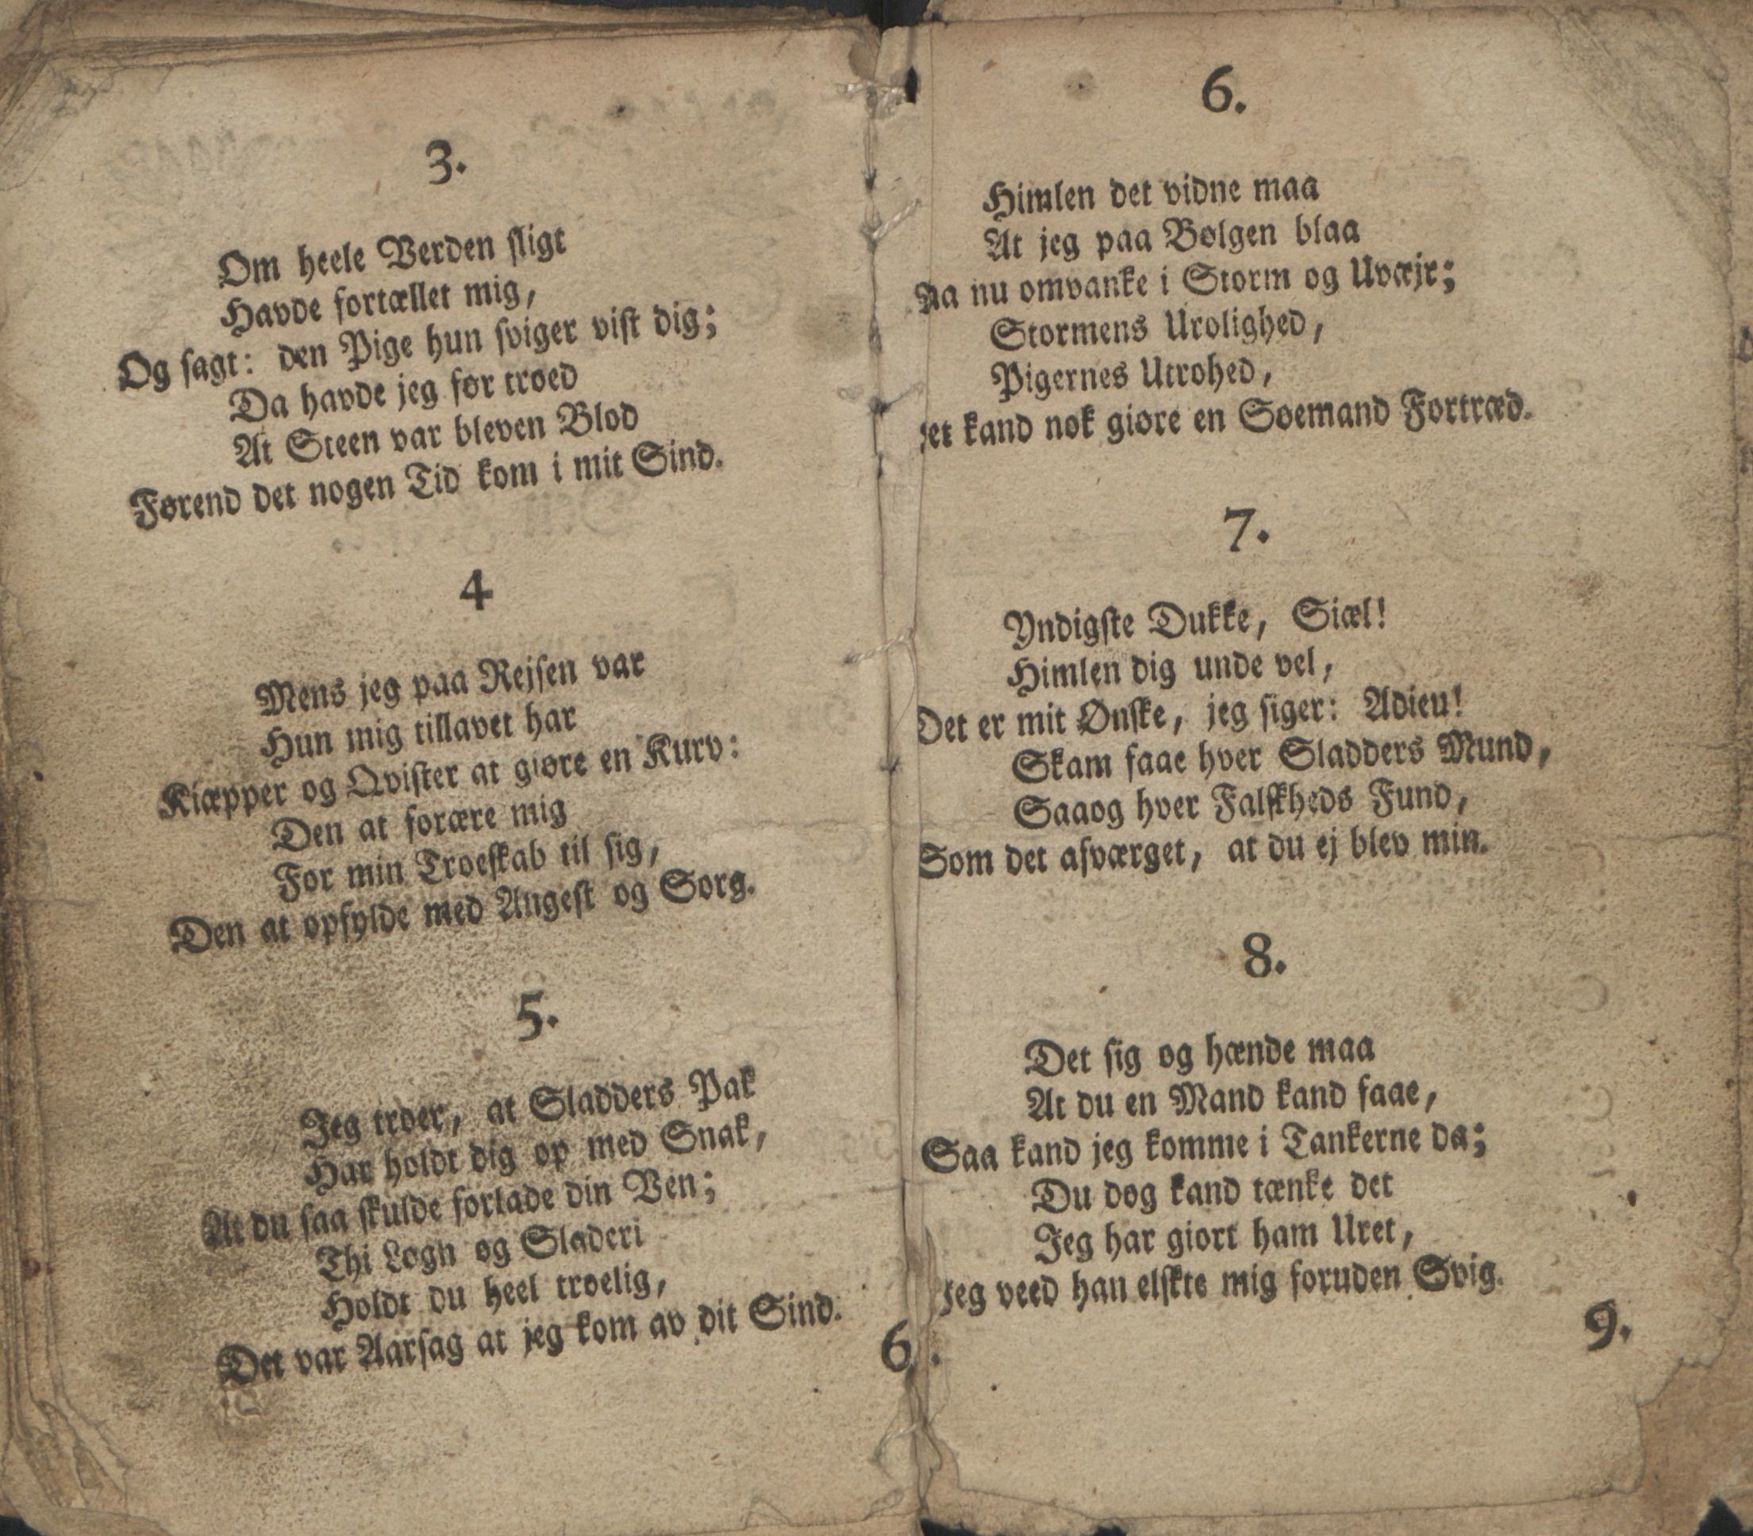 3.
Om heele Verden sligt
Havde fortællet mig,
Og sagt: den Pige hun sviger vist dig;
Da havde jeg før troed
At Steen var bleven Blod
Førend det nogen Tid kom i mit Sind.
4
Mens jeg paa Rejsen var
Hun mig tillavet har
Kiæpper og Qvister at giøre en Kurv:
Den at forære mig
For min Troeskab til sig,
Den at opfylde med Angest og Sorg.
5.
Jeg troer, at Sladders Pak
Har holdt dig op med Snak,
At du saa skulde forlade din Ven;
Thi Løgn og Sladeri
Holdt du heel troelig,
Det var Aarsag at jeg kom av dit Sind.
6.
6.
Himlen det vidne maa
At jeg paa Bølgen blaa
Aa nu omvanke i Storm og Uvæjr;
Stormens Urolighed,
Pigernes Utrohed,
et kand nok giøre en Søemand Fortræd.
7.
Yndigste Dukke, Siæl!
Himlen dig unde vel,
Det er mit Ønske, jeg siger: Adieu!
Skam faae hver Sladders Mund,
Saaog hver Falskheds Fund,
Som det afværget, at du ej blev min.
8.
Det sig og hænde maa
At du en Mand kand faae,
Saa kand jeg komme i Tankerne da;
Du dog kand tænke det
Jeg har giort ham Uret,
Jeg veed han elskte mig foruden Svig.
9.